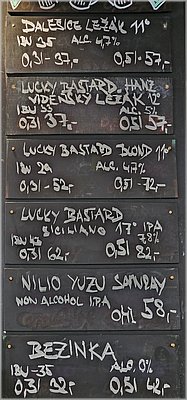 DALEŠICE LEŽÁK 11°
IBU 35 ALC. 4,7%
0,3l - 37,- 0,5l - 57,-
LUCKY BASTARD, HANZ
VÍDEŇSKÝ LEŽÁK 12
IBU 33 ALC 52
0,3l 37,- 0,5l 57,-
LUCKY BASTARD BLOND 11°
IBU 29 ALC. 4,7%
0,3l - 52,- 0,5l - 72,-
LUCKY BASTARD
SICILIANO 17° IPA
IBU 43 7,8%
0,3l 62,- 0,5l 82,-
NILIO YUZU SAMURAY
NON ALCOHOL IPA
0,4l 58,-
BEZINKA
IBU - 35 ALC. 0%
0,3l 32,- 0,5l 42,-